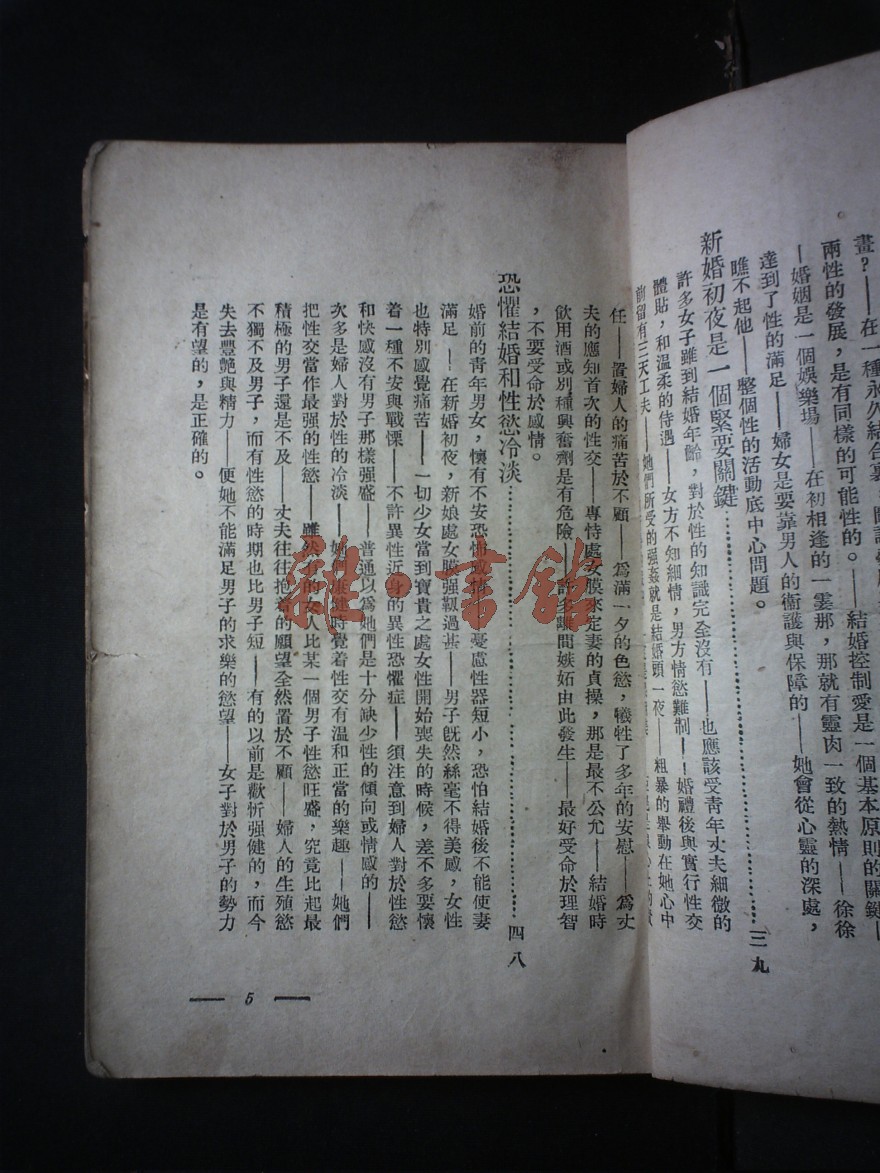 畫?——在一種永久結合裏,
兩性的發展,是有同樣的可能性的。——結婚控制愛是一個基本原則的關鍵——
——婚姻是一個娛樂場——在初相逢的一霎那,那就有靈肉一致的熱情——徐徐
達到了性的滿足——婦女是要靠男人的衞護與保障的——她會從心靈的深處,
瞧不起他——整個性的活動底中心問題。
新婚初夜是一個緊要關鍵…………三九
許多女子雖到結婚年齡,對於性的知識完全沒有——也應該受青年丈夫細微的
體貼,和溫柔的待遇——女方不知細情,男方情慾難制——婚禮後與實行性交
前留有三天工夫——她們所受的强姦就是結婚頭一夜——粗暴的舉動在她心中
任——置婦人的痛苦於不顧——爲滿一夕的色慾,犧牲了多年的安慰——爲丈
夫的應知首次的性交——專恃處女膜來定妻的貞操,那是最不公允——結婚時
飲用酒或別種興奮劑是有危險——許多離間嫉妬由此發生——最好受命於理智
,不要受命於感情。
恐懼結婚和性慾冷淡…………四八
婚前的青年男女,懷有不安恐怖或猜疑憂慮性器短小,恐怕結婚後不能使妻
滿足——在新婚初夜,新娘處女膜强靱過甚——男子旣然絲毫不得美感,女性
也特別感覺痛苦——一切少女當到寶貴之處女性開始喪失的時候,差不多要懷
着一種不安與戰慄——不許異性近身的異性恐懼症——須注意到婦人對於性慾
和快感沒有男子那樣强盛——普通以爲她們是十分缺少性的傾向或情感的——
次多是婦人對於性的冷淡——她們康健時覺着性交有溫和正當的樂趣——她們
把性交當作最强的性慾——雖然有的女人比某一個男子性慾旺盛,究竟比起最
積極的男子還是不及——丈夫往往抱着的願望全然置於不顧——婦人的生殖慾
不獨不及男子,而有性慾的時期也比男子短——有的以前是歡忻强健的,而今
失去豐艷與精力——便她不能滿足男子的求樂的慾望——女子對於男子的勢力
是有望的,是正確的。
— 5 —
雜·書館